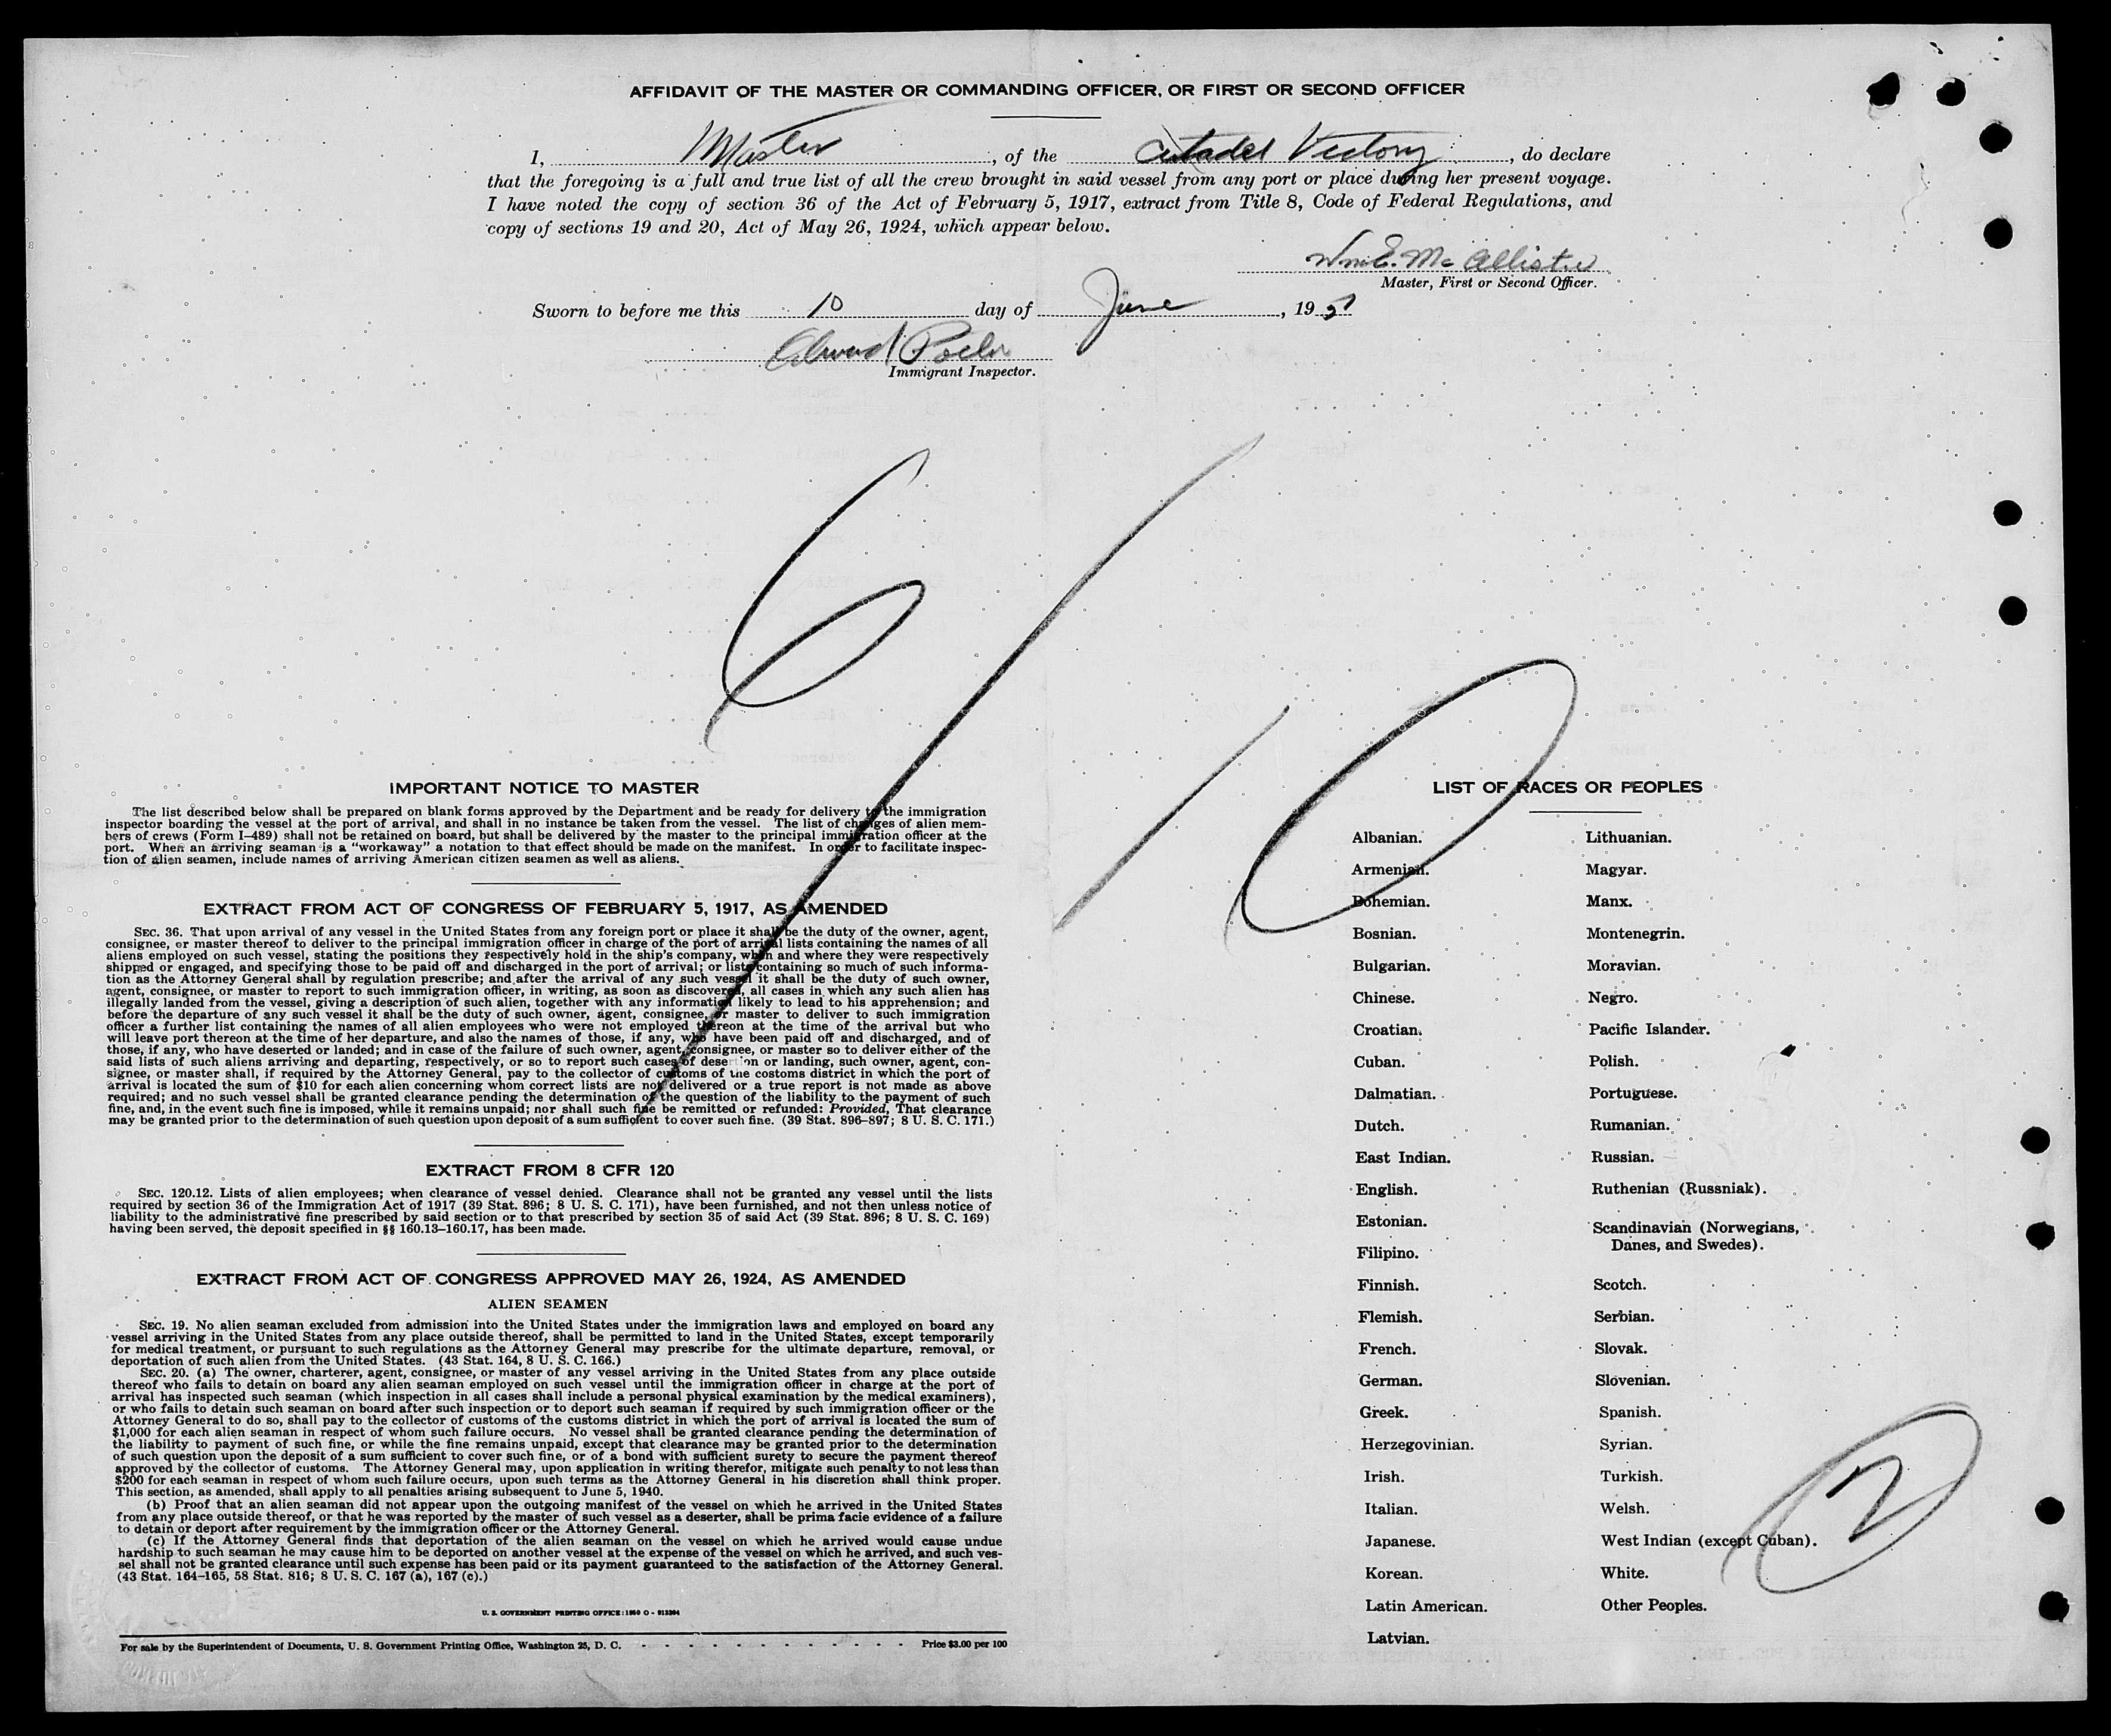 AFFIDAVIT OF THE MASTER OR COMMANDING OFFICER, OR FIRST OR SECOND OFFICER
I, Master, of the Citadel Victory, do declare
that the foregoing is a full and true list of all the crew brought in said vessel from any port or place during her present voyage.
I have noted the copy of section 36 of the Act of February 5, 1917, extract from Title 8, Code of Federal Regulations, and
copy of sections 19 and 20, Act of May 26, 1924, which appear below.
Wm E. McAllister
Master, First or Second Officer.
Sworn to before me this 10 day of June, 1951
Immigrant Inspector.
6/10
IMPORTANT NOTICE TO MASTER
The list described below shall be prepared on blank forms approved by the Department and be ready for delivery to the immigration
inspector boarding the vessel at the port of arrival, and shall in no instance be taken from the vessel. The list of changes of alien mem-
bers of crews (Form I–489) shall not be retained on board, but shall be delivered by the master to the principal immigration officer at the
port. When an arriving seaman is a "workaway" a notation to that effect should be made on the manifest. In order to facilitate inspec-
tion of alien seamen, include names of arriving American citizen seamen as well as aliens.
EXTRACT FROM ACT OF CONGRESS OF FEBRUARY 5, 1917, AS AMENDED
SEC. 36. That upon arrival of any vessel in the United States from any foreign port or place it shall be the duty of the owner, agent,
consignee, or master thereof to deliver to the principal immigration officer in charge of the port of arrival lists containing the names of all
aliens employed on such vessel, stating the positions they respectively hold in the ship's company, when and where they were respectively
shipped or engaged, and specifying those to be paid off and discharged in the port of arrival; or lists containing so much of such informa-
tion as the Attorney General shall by regulation prescribe; and after the arrival of any such vessel it shall be the duty of such owner,
agent, consignee, or master to report to such immigration officer, in writing, as soon as discovered, all cases in which any such alien has
illegally landed from the vessel, giving a description of such alien, together with any information likely to lead to his apprehension; and
before the departure of any such vessel it shall be the duty of such owner, agent, consignee, or master to deliver to such immigration
officer a further list containing the names of all alien employees who were not employed thereon at the time of the arrival but who
will leave port thereon at the time of her departure, and also the names of those, if any, who have been paid off and discharged, and of
those, if any, who have deserted or landed; and in case of the failure of such owner, agent, consignee, or master so to deliver either of the
said lists of such aliens arriving and departing, respectively, or so to report such cases of desertion or landing, such owner, agent, con-
signee, or master shall, if required by the Attorney General, pay to the collector of customs of the customs district in which the port of
arrival is located the sum of $10 for each alien concerning whom correct lists are not delivered or a true report is not made as above
required; and no such vessel shall be granted clearance pending the determination of the question of the liability to the payment of such
fine, and, in the event such fine is imposed, while it remains unpaid; nor shall such fine be remitted or refunded: Provided, That clearance
may be granted prior to the determination of such question upon deposit of a sum sufficient to cover such fine. (39 Stat. 896–897; 8 U. S. C. 171.)
EXTRACT FROM 8 CFR 120
SEC. 120.12. Lists of alien employees; when clearance of vessel denied. Clearance shall not be granted any vessel until the lists
required by section 36 of the Immigration Act of 1917 (39 Stat. 896; 8 U. S. C. 171), have been furnished, and not then unless notice of
liability to the administrative fine prescribed by said section or to that prescribed by section 35 of said Act (39 Stat. 896; 8 U. S. C. 169)
having been served, the deposit specified in §§ 160.13–160.17, has been made.
EXTRACT FROM ACT OF CONGRESS APPROVED MAY 26, 1924, AS AMENDED
ALIEN SEAMEN
SEC. 19. No alien seaman excluded from admission into the United States under the immigration laws and employed on board any
vessel arriving in the United States from any place outside thereof, shall be permitted to land in the United States, except temporarily
for medical treatment, or pursuant to such regulations as the Attorney General may prescribe for the ultimate departure, removal, or
deportation of such alien from the United States. (43 Stat. 164, 8 U. S. C. 166.)
SEC. 20. (a) The owner, charterer, agent, consignee, or master of any vessel arriving in the United States from any place outside
thereof who fails to detain on board any alien seaman employed on such vessel until the immigration officer in charge at the port of
arrival has inspected such seaman (which inspection in all cases shall include a personal physical examination by the medical examiners),
or who fails to detain such seaman on board after such inspection or to deport such seaman if required by such immigration officer or the
Attorney General to do so, shall pay to the collector of customs of the customs district in which the port of arrival is located the sum of
$1,000 for each alien seaman in respect of whom such failure occurs. No vessel shall be granted clearance pending the determination of
the liability to payment of such fine, or while the fine remains unpaid, except that clearance may be granted prior to the determination
of such question upon the deposit of a sum sufficient to cover such fine, or of a bond with sufficient surety to secure the payment thereof
approved by the collector of customs. The Attorney General may, upon application in writing therefor, mitigate such penalty to not less than
$200 for each seaman in respect of whom such failure occurs, upon such terms as the Attorney General in his discretion shall think proper.
This section, as amended, shall apply to all penalties arising subsequent to June 5, 1940.
(b) Proof that an alien seaman did not appear upon the outgoing manifest of the vessel on which he arrived in the United States
from any place outside thereof, or that he was reported by the master of such vessel as a deserter, shall be prima facie evidence of a failure
to detain or deport after requirement by the immigration officer or the Attorney General.
(c) If the Attorney General finds that deportation of the alien seaman on the vessel on which he arrived would cause undue
hardship to such seaman he may cause him to be deported on another vessel at the expense of the vessel on which he arrived, and such ves-
sel shall not be granted clearance until such expense has been paid or its payment guaranteed to the satisfaction of the Attorney General.
(43 Stat. 164–165, 58 Stat. 816; 8 U. S. C. 167 (a), 167 (c).)
U. S. GOVERNMENT PRINTING OFFICE: 1950 O - 913364
For sale by the Superintendent of Documents, U. S. Government Printing Office, Washington 25, D. C. - - - - - - - - - - - - Price $3.00 per 100
LIST OF RACES OR PEOPLES
Albanian.
Armenian.
Bohemian.
Bosnian.
Bulgarian.
Chinese.
Croatian.
Cuban.
Dalmatian.
Dutch.
East Indian.
English.
Estonian.
Filipino.
Finnish.
Flemish.
French.
German.
Greek.
Herzegovinian.
Irish.
Italian.
Japanese.
Korean.
Latin American.
Latvian.
Lithuanian.
Magyar.
Manx.
Montenegrin.
Moravian.
Negro.
Pacific Islander.
Polish.
Portuguese.
Rumanian.
Russian.
Ruthenian (Russniak).
Scandinavian (Norwegians,
Danes, and Swedes).
Scotch.
Serbian.
Slovak.
Slovenian.
Spanish.
Syrian.
Turkish.
Welsh.
West Indian (except Cuban).
White.
Other Peoples.
2